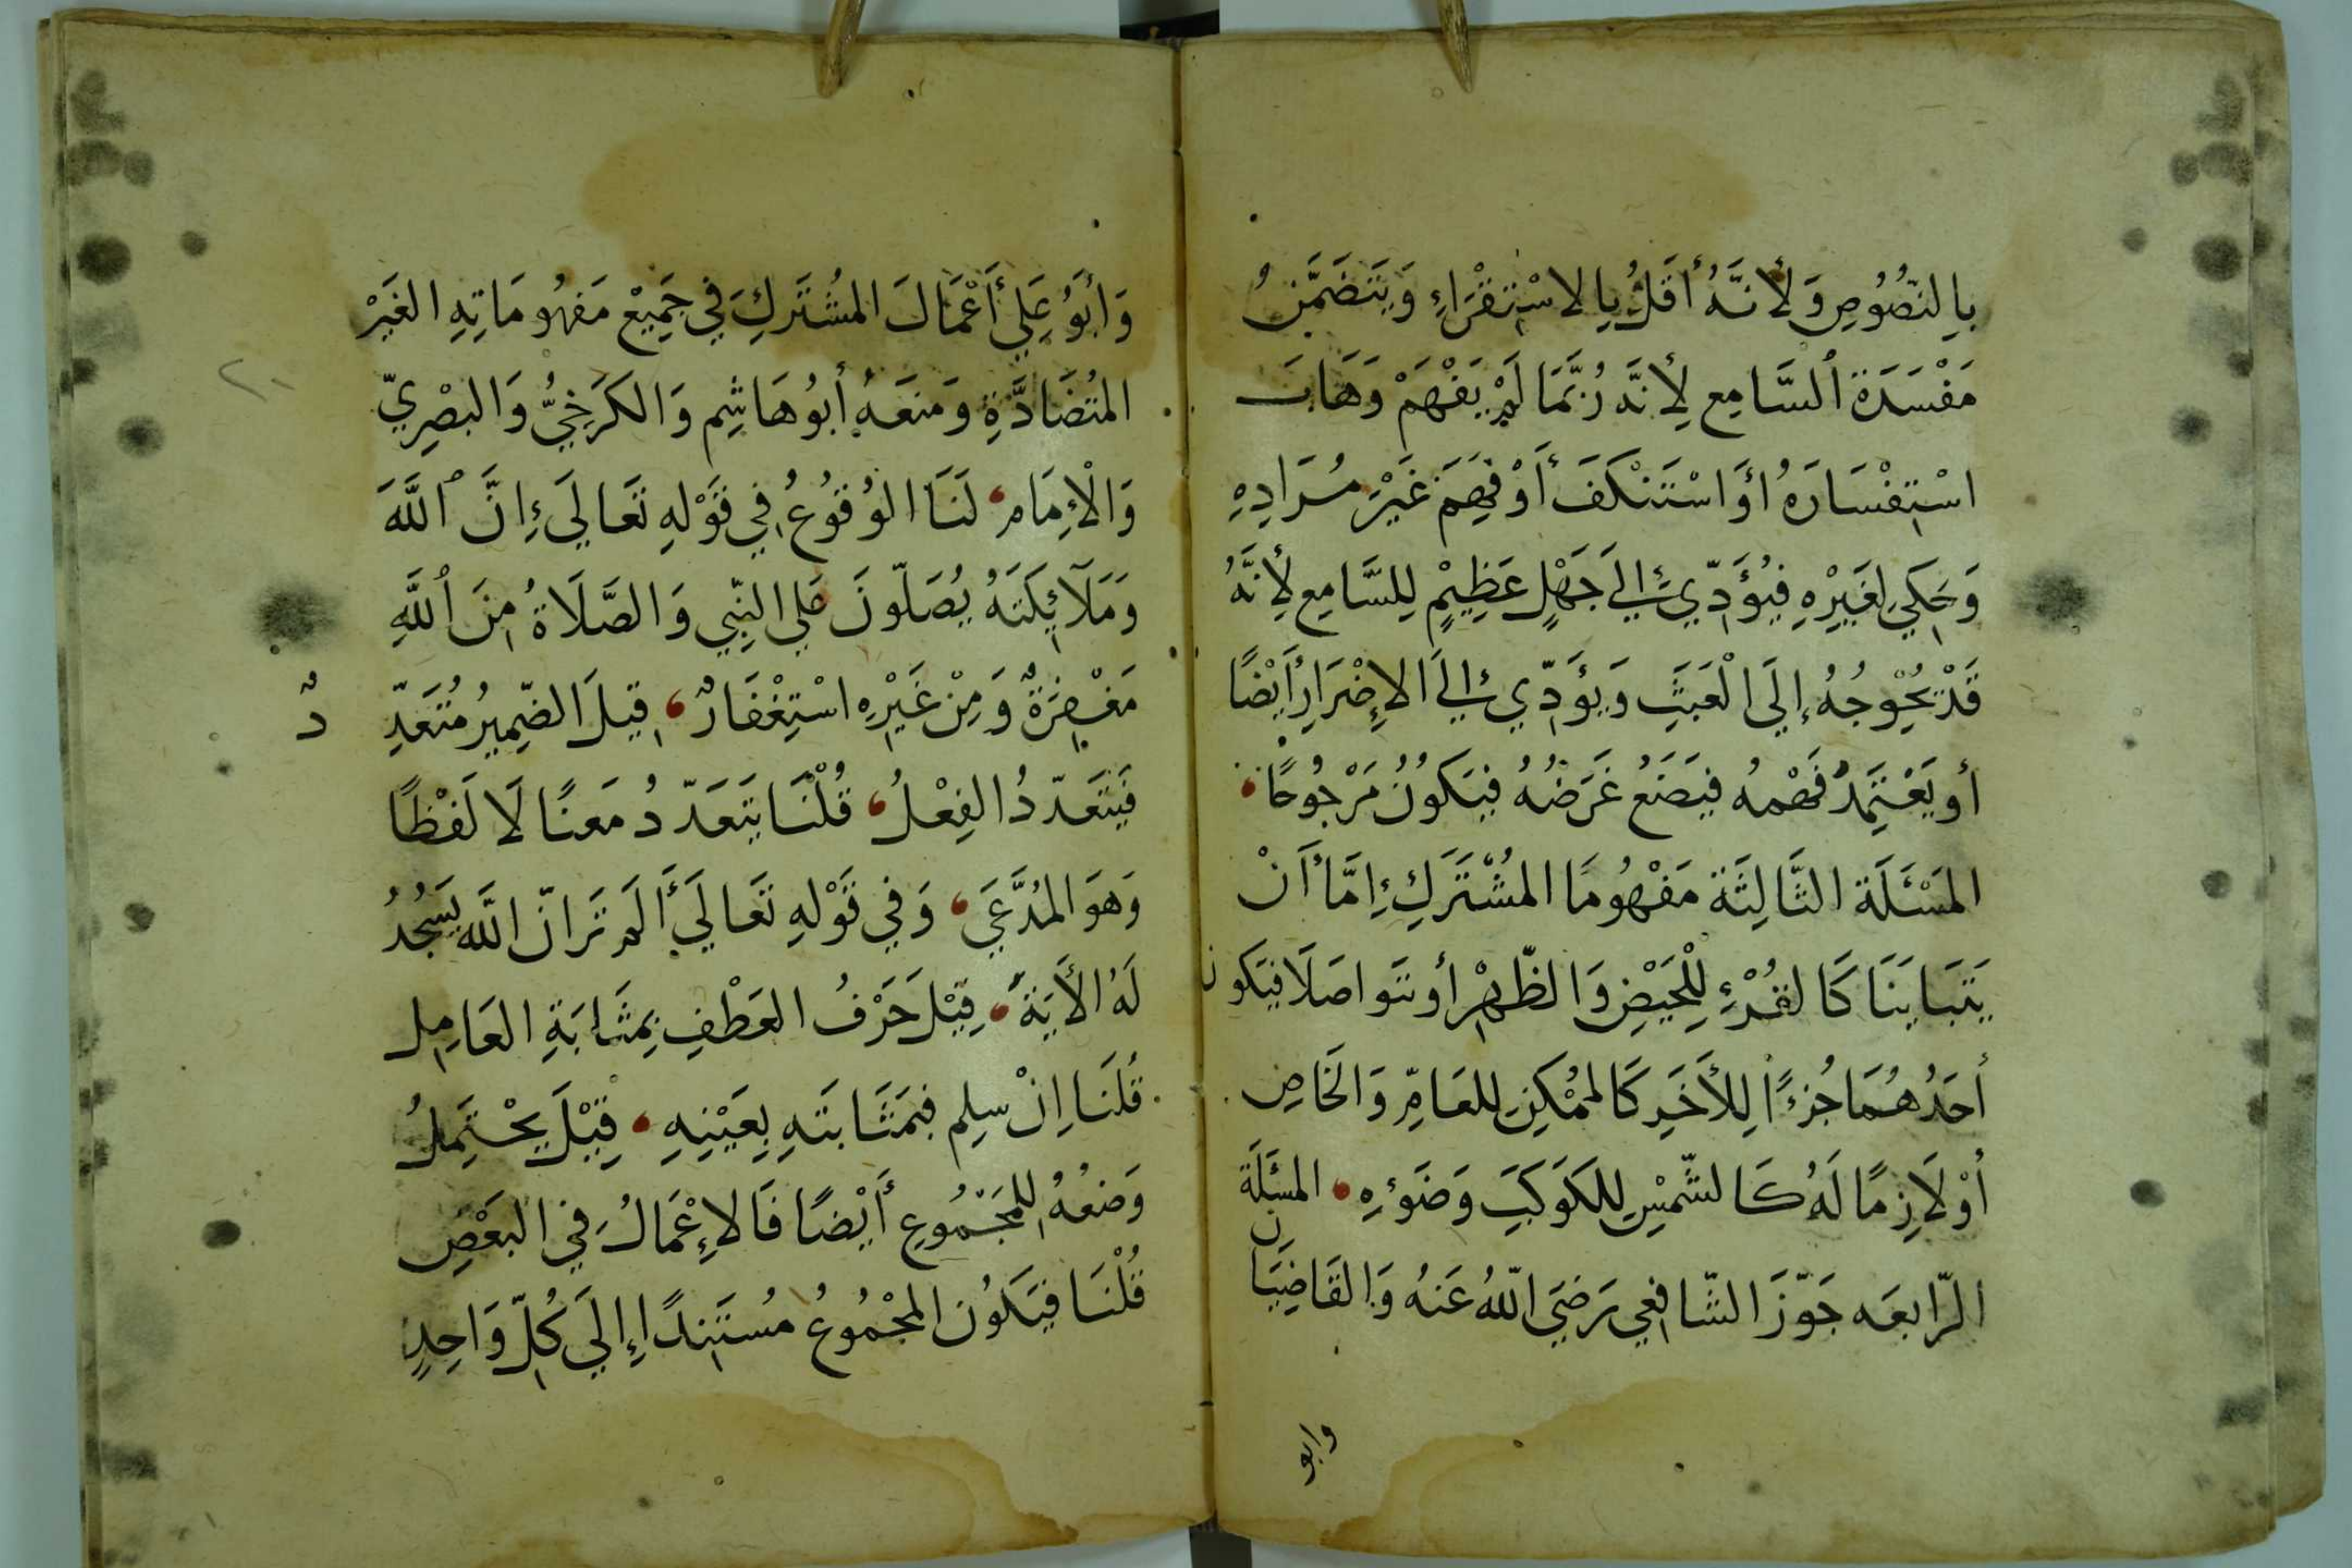 بِالنصُوُصِ وَلأنَّهُ أقَلُّ بِالاسْتِقْرَاءِ وَيَتَضَمَّنُ
مَفْسَدَةَ ٱلسَّامِعِ لِأنَّه رُبَّمَا لَمْ يَفْهَمْ وَهَابَ
اسْتِفْسَارَهُ أوَ اسْتَنْكَفَ أَوْ فَهِمَ غَيْرَ مُرَادِهِ
وَحَكَي لِغَيْرِهِ فَيُؤَدِّي إلَي جَهْلٍ عَظِيْمٍ لِلسَّامِعِ لِأنَّهُ
قَدْ يُحْوِجُهُ إلَى الْعَبَثِ وَيؤَدِّي إلَي الإِضْرَارِ أَيْضًا
أو يَعْتَمِدُ فَهْمهُ فيَضَعُ غَرَضُهُ فَيَكوُنُ مَرْجُوحًا
المَسْئَلَة الثَّالِثَة مَفْهُومَا المُشْتَرَكِ إِمَّا أَنْ
يَتَبَايَنَا كَالقُرْءِ لِلْحَيْضِ وَالطّهْرِ أو يتَواصَلَا فيَكون
أحَدُهُمَا جُزءًا لِلأخَرِ كَالمُمْكِنِ لِلعَامِّ وَالخَاصِ
أوْ لَازِمًا لَهُ كَالشّمْسِ لِلكَوكَبِ وَضَوئِهِ المسْئَلَة
الرّابعَه جَوّزَ الشّافِعي رَضِيَ اللّهُ عَنهُ وَالقَاضِيَا
ن
وابو
وَأبُوَ عَلِي أَعْمَالَ المُشتَرَكِ في جَمِيعْ مَفهُومَاتِهِ الغَيْر
المُتَضَادَّةِ وَمنَعَهُ أبوُهَاشِم وَالكَرَخِيُّ وَالبصْرِيّ
وَالْإِمَام لَنَا الوُقوُعُ في قَوْلِهِ تَعَالَى إنَّ ٱللَّهَ
وَمَلَآئِكَتَهُ يُصَلّونَ عَلي النبِّي وَالصَّلَاةُ مِنَ ٱللَّهِ
مَغْفِرَةٌ وَمِنْ غَيْرِهِ اسْتِغْفَارٌ قِيلَ الضّمِيرُ مُتَعَدِّ
دٌ
فَيَتَعَدّدُ الفِعْلُ قُلْنَا يَتَعَدّدُ مَعنًا لَا لَفْظًا
وَهوَ المُدَّعَي وَفي قَوْلِهِ تَعَالَي أَلَم تَرَ انّ اللَّه يَسْجُدُ
لَهُ الأَيَةَ قِيْلَ حَرْفُ العَطْفِ بِمَثَابَةِ العَامِلِ
قُلنَا اِنْ سلِم فبِمَثَابتَهِ بِعَيْنِهِ قِيْلَ يَحْتَمِلُ
وَضعُهُ لِلمَجْمُوعِ أَيْضًا فَالاِعْمَالُ في البَعْضِ
قُلْنَا فيَكَوُن المجْمُوعُ مُستَنِدًا إلَي كُلّ وَاحِدٍ
٢٠